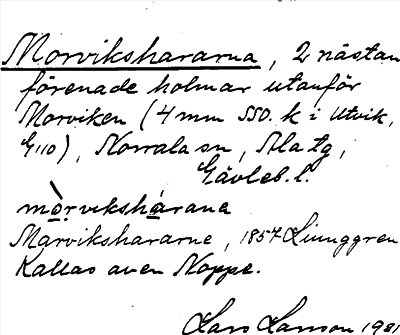 Morvikshararna, 2 nästan
förenade holmar utanför
Morviken (4 mm SSO. k i Utvik,
G110), Norrala sn, Ala tg,
Gävleb. l.
mòrvikshárana
Marvikshararne, 1857 Ljunggren
Kallas även Noppe.
Lars Larson 1931